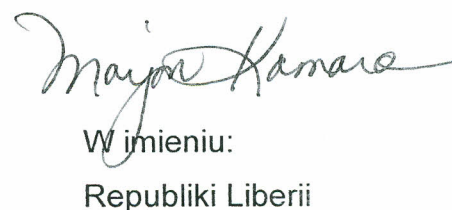 Marjon Kamara
W imieniu:
Republiki Liberii